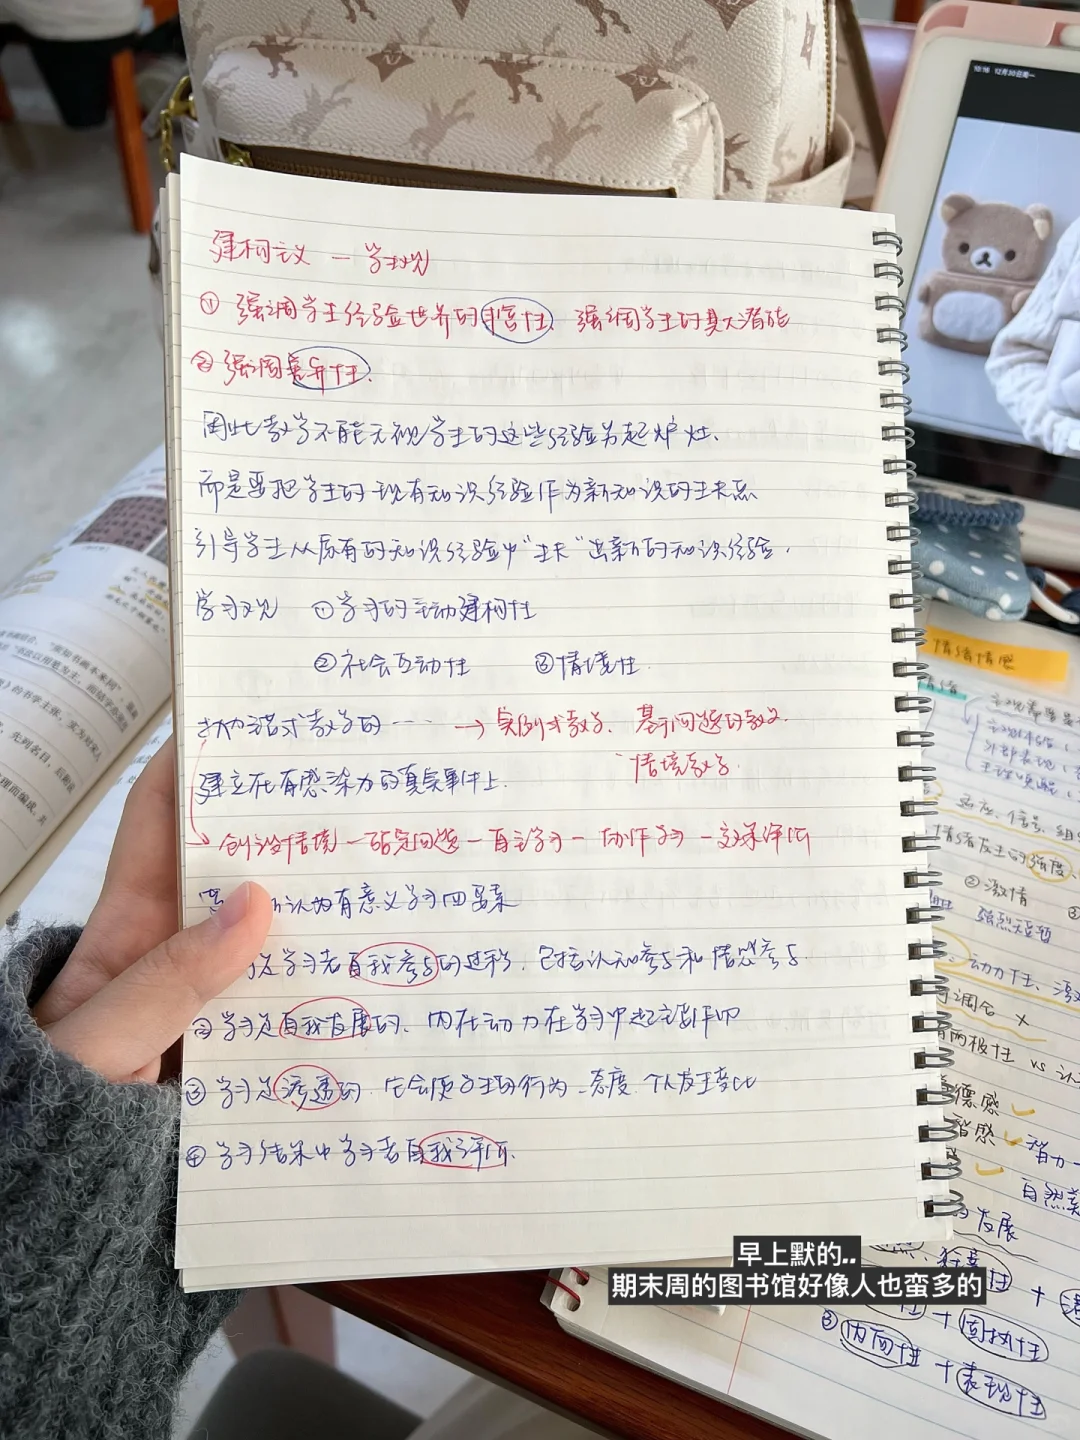 建构主义 — 学生观
① 强调学生经验世界的丰富性、强调学生的巨大潜能
② 强调差异性、
因此教学不能无视学生的这些经验另起炉灶、
而是要把学生的现有知识经验作为新知识的生长点
引导学生从原有的知识经验中“生长”出新的知识经验.
学习观 ①学习的主动建构性
②社会互动性 ③情境性.
抛锚式教学的…… → 实例式教学、基于问题的教学.
情境教学.
建立在有感染力的真实事件上.
创设情境—确定问题—自主学习—协作学习—效果评价
认为有意义学习四要素
学习者自我参与的过程, 包括认知参与和情感参与.
② 学习是自我发展的、内在动力在学习中起主要作用
③ 学习是渗透的. 它会使学生的行为、态度、个人发生变化
④ 学习结果由学习者自我评价.
10:16 12月30日周一
情绪情感
情绪
情绪发生的强度、
②激情
强烈短暂
动力性、激
调合 ×
有两极性 vs 认
德感
智感
自然美
发展
+ 固执性
③ 内向性 + 表现性
早上默的..
期末周的图书馆好像人也蛮多的